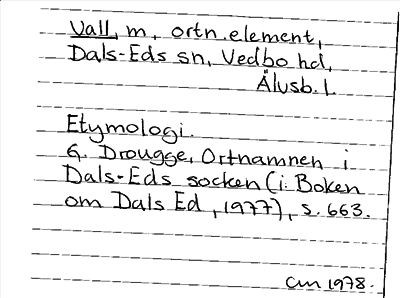 Vall, m, ortn.element,
Dals-Eds sn, Vedbo hd,
Älvsb. l.
Etymologi.
G. Drougge, Ortnamnen i
Dals-Eds socken (i: Boken
om Dals Ed, 1977), s. 663.
CM 1978.